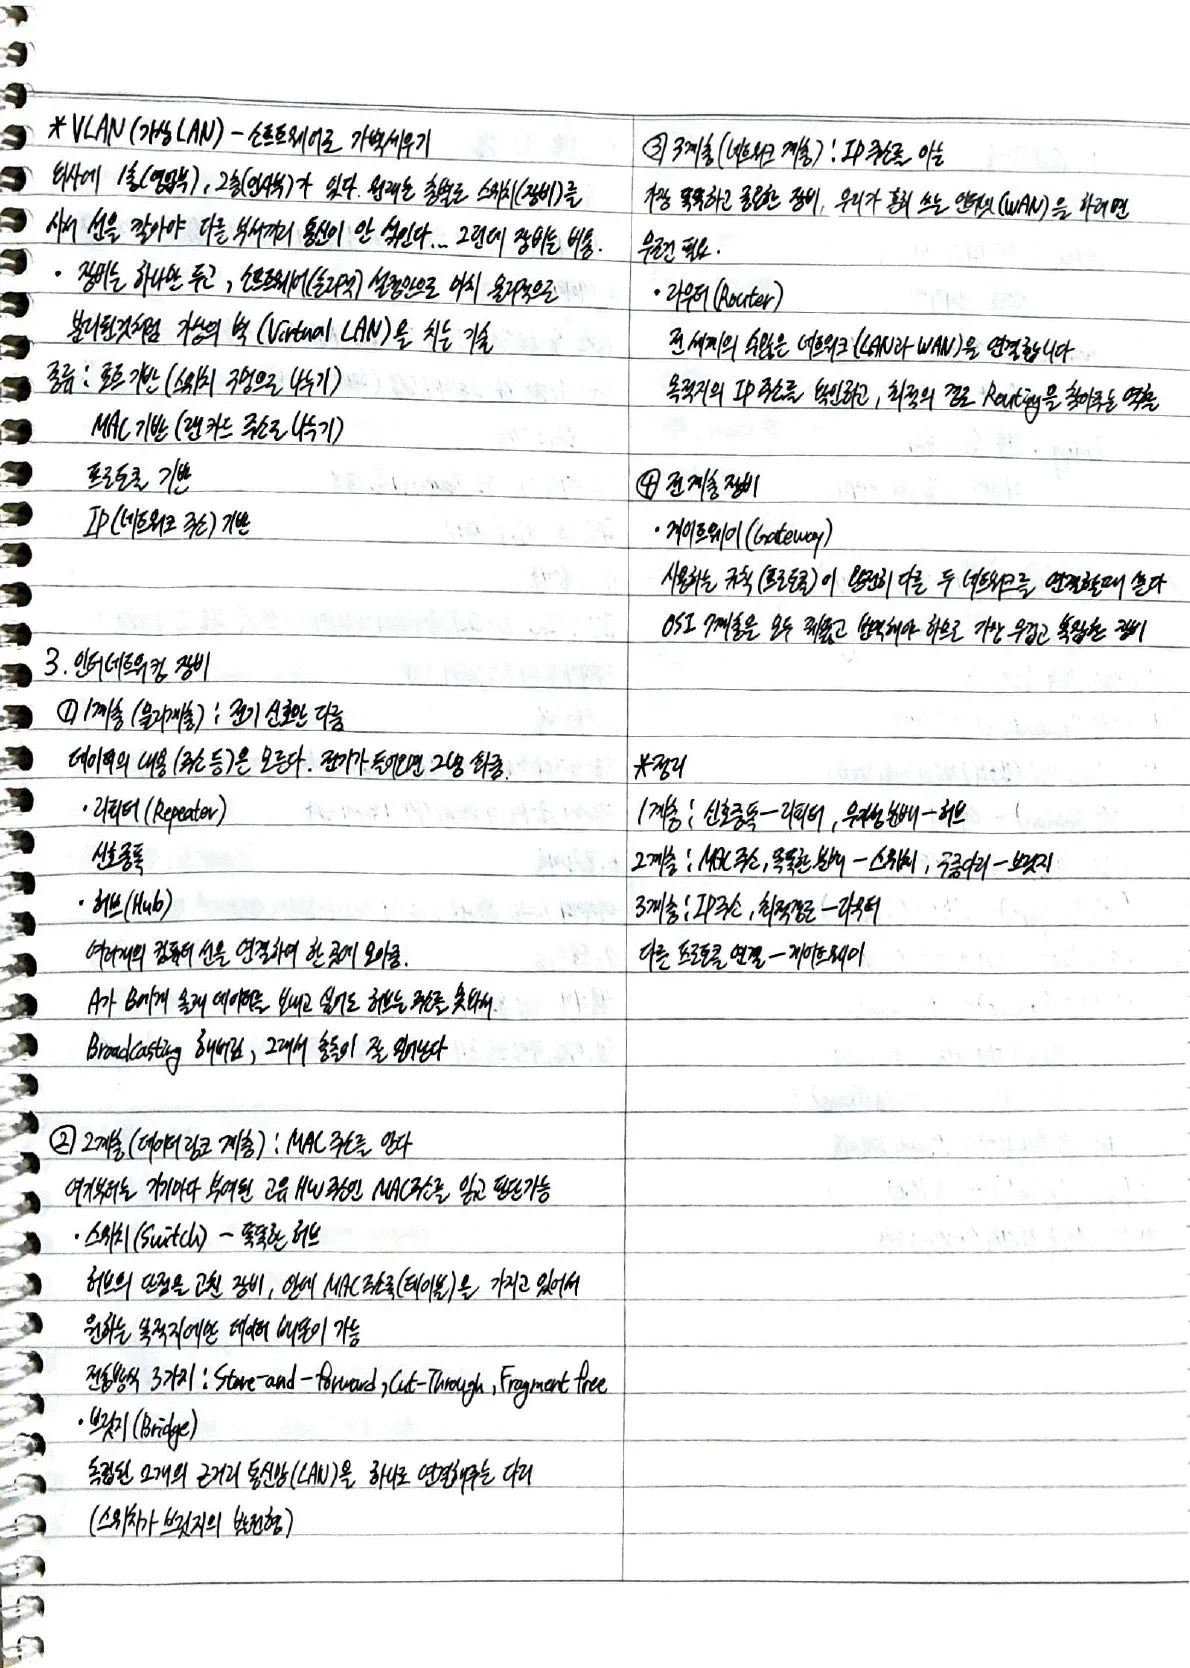 * VLAN (가상 LAN) - 소프트웨어로 가벽세우기
회사에 1층(영업부), 2층(인사부)가 있다. 원래는 층별로 스위치(장비)를
사서 선을 깔아야 다른 부서끼리 통신이 안 섞인다... 그런데 장비는 비쌈.
· 장비는 하나만 두고, 소프트웨어(논리적) 설정만으로 마치 물리적으로
분리된것처럼 가상의 벽 (Virtual LAN)을 치는 기술
종류 : 포트 기반 (스위치 구멍으로 나누기)
MAC 기반 (랜 카드 주소로 나누기)
프로토콜 기반
IP (네트워크 주소) 기반
3. 인터네트워킹 장비
① 1계층 (물리계층) : 전기 신호만 다룸
데이터의 내용 (주소 등)은 모른다. 전기가 들어오면 그냥
· 리피터 (Repeater)
신호증폭
· 허브 (Hub)
여러개의 컴퓨터 선을 연결하여 한 곳에 모아줌.
A가 B에게 몰래 데이터를 보내고 싶어도 허브는 주소를 못봐서.
Broadcasting 해버림, 그래서 충돌이 잘 일어난다
② 2계층 (데이터 링크 계층) : MAC 주소를 안다
여기부터는 기기마다 부여된 고유 HW 주소인 MAC주소를 읽고 판단가능
· 스위치 (Switch) - 똑똑한 허브
허브의 단점을 고친 장비, 안에 MAC 주소록(테이블)을 가지고 있어서
원하는 목적지에만 데이터 배달이 가능
전송방식 3가지 : Store-and-forward, Cut-Through, Fragment free
· 브릿지 (Bridge)
독립된 2개의 근거리 통신망(LAN)을 하나로 연결해주는 다리
(스위치가 브릿지의 발전형)
③ 3계층 (네트워크 계층) : IP 주소를 아는
가장 똑똑하고 중요한 장비, 우리가 흔히 쓰는 인터넷 (WAN)을 하려면
무조건 필요.
· 라우터 (Router)
전 세계의 수많은 네트워크 (LAN과 WAN)을 연결합니다
목적지의 IP 주소를 확인하고, 최적의 경로 Routing을 찾아주는 역할
④ 전 계층 장비
· 게이트웨이 (Gateway)
사용하는 규칙 (프로토콜)이 완전히 다른 두 네트워크를 연결할때 쓴다
OSI 7계층을 모두 꿰뚫고 번역해야 하므로 가장 무겁고 복잡한 장비
* 정리
1계층 : 신호증폭 - 리피터, 무작정 분배 - 허브
2계층 : MAC 주소, 똑똑한 분배 - 스위치, 구름다리 - 브릿지
3계층 : IP 주소, 최적경로 - 라우터
다른 프로토콜 연결 - 게이트웨이